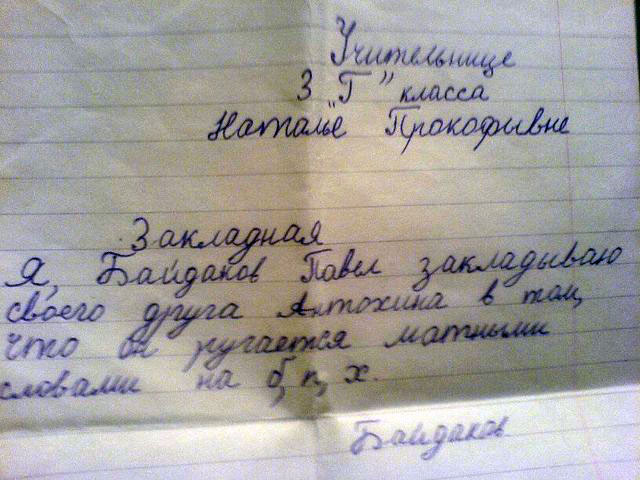 Учительнице
3 "Г" класса
Наталье Прокофывне
Закладная
Я, Байдаков Павел закладываю
своего друга Антохина в том,
что он ругается матными
словами на б, п, х.
Байдаков